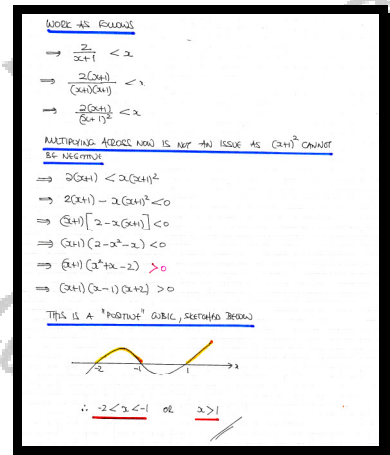 WORK AS FOLLOWS
⇒ 2/(x+1) < x
⇒ 2(x+1)/((x+1)(x+1)) < x
⇒ 2(x+1)/(x+1)² < x
MULTIPLYING ACROSS NOW IS NOT AN ISSUE AS (x+1)² CANNOT
BE NEGATIVE
⇒ 2(x+1) < x(x+1)²
⇒ 2(x+1) - x(x+1)² < 0
⇒ (x+1)[2 - x(x+1)] < 0
⇒ (x+1)(2-x²-x) < 0
⇒ (x+1)(x²+x-2) > 0
⇒ (x+1)(x-1)(x+2) > 0
THIS IS A "POSITIVE" CUBIC, SKETCHED BELOW
-2 -1 1 x
∴ -2 < x < -1 OR x > 1